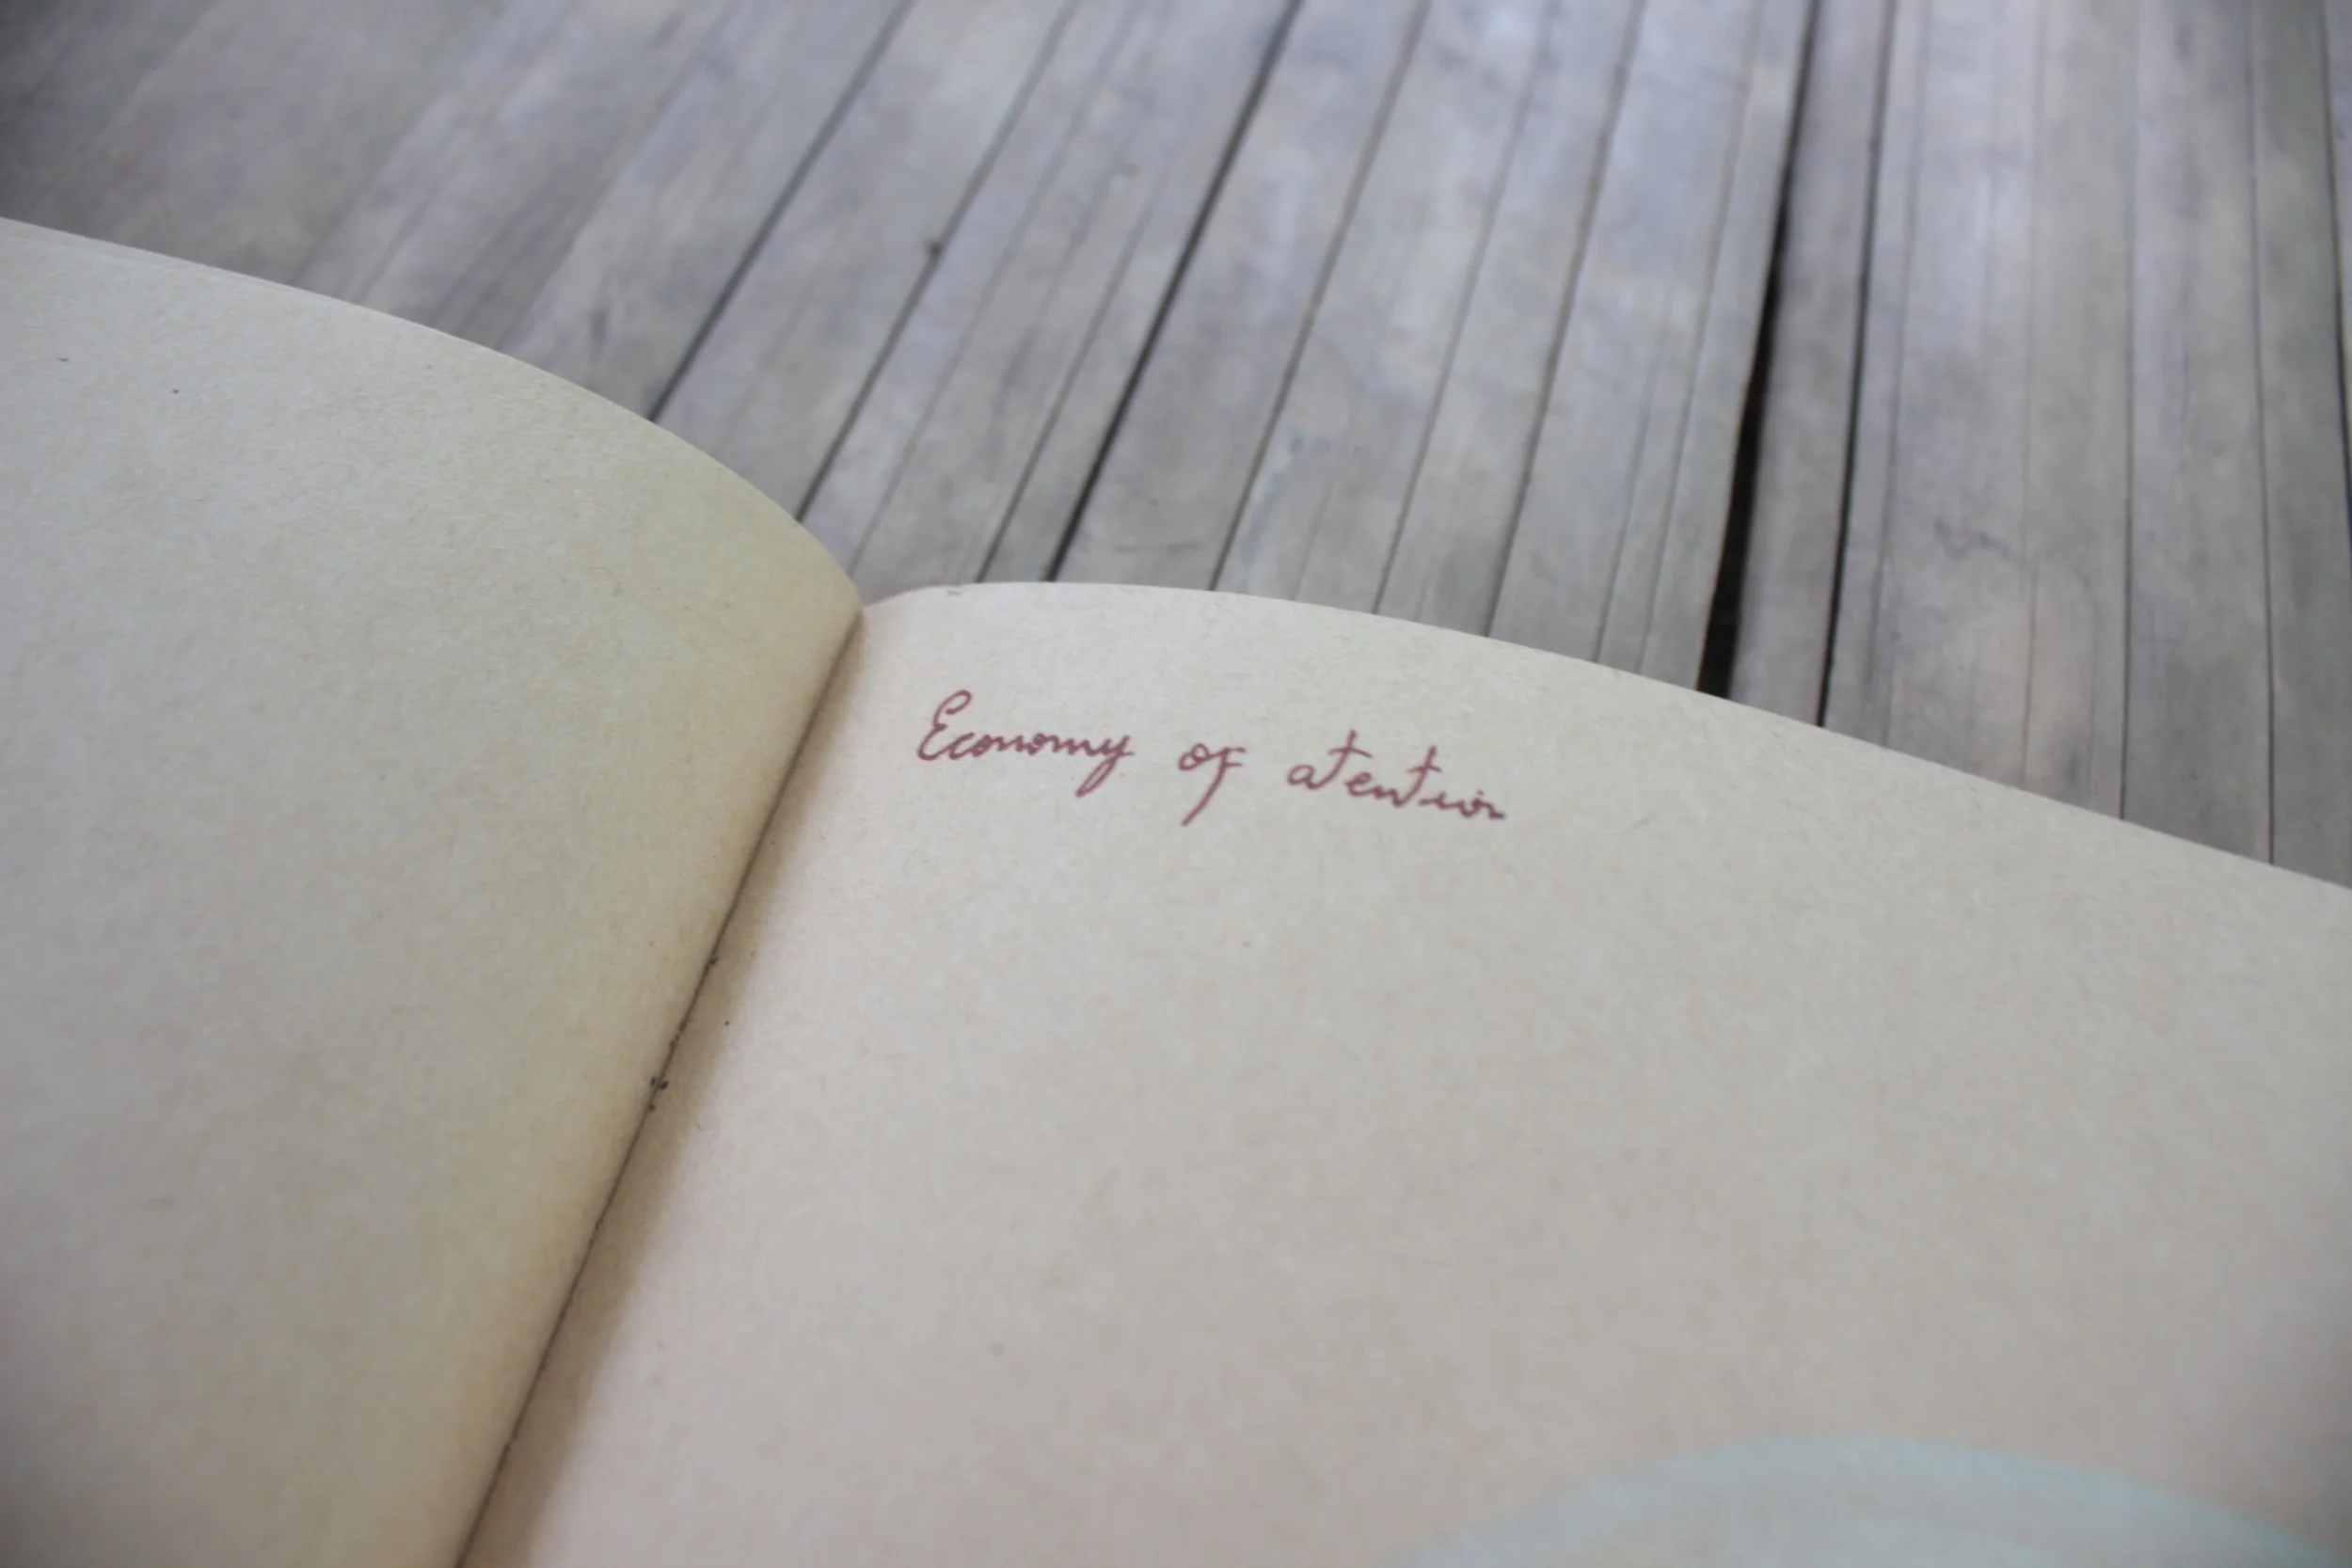 Economy of atention